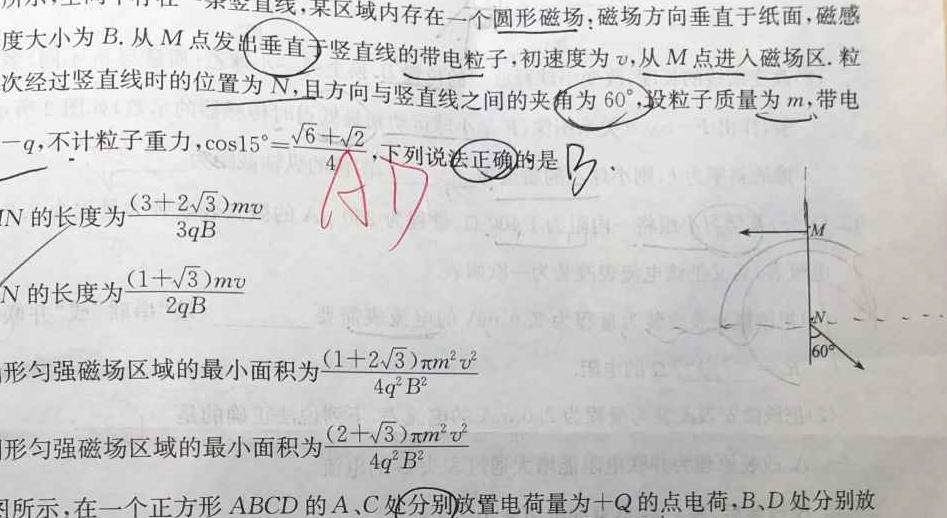 条竖直线,某区域内存在一个圆形磁场;磁场方向垂直于纸面,磁感
度大小为 B. 从 M 点发出垂直于竖直线的带电粒子,初速度为 v,从 M 点进入磁场区. 粒
次经过竖直线时的位置为 N,且方向与竖直线之间的夹角为 60°,设粒子质量为 m,带电
−q,不计粒子重力,cos15°=(√6+√2)/4,下列说法正确的是 B.
AD
MN 的长度为 (3+2√3)mv/3qB
N 的长度为 (1+√3)mv/2qB
形匀强磁场区域的最小面积为 (1+2√3)πm²v²/4q²B²
形匀强磁场区域的最小面积为 (2+√3)πm²v²/4q²B²
M
N
60°
图所示,在一个正方形 ABCD 的 A、C 处分别放置电荷量为+Q 的点电荷,B、D 处分别放